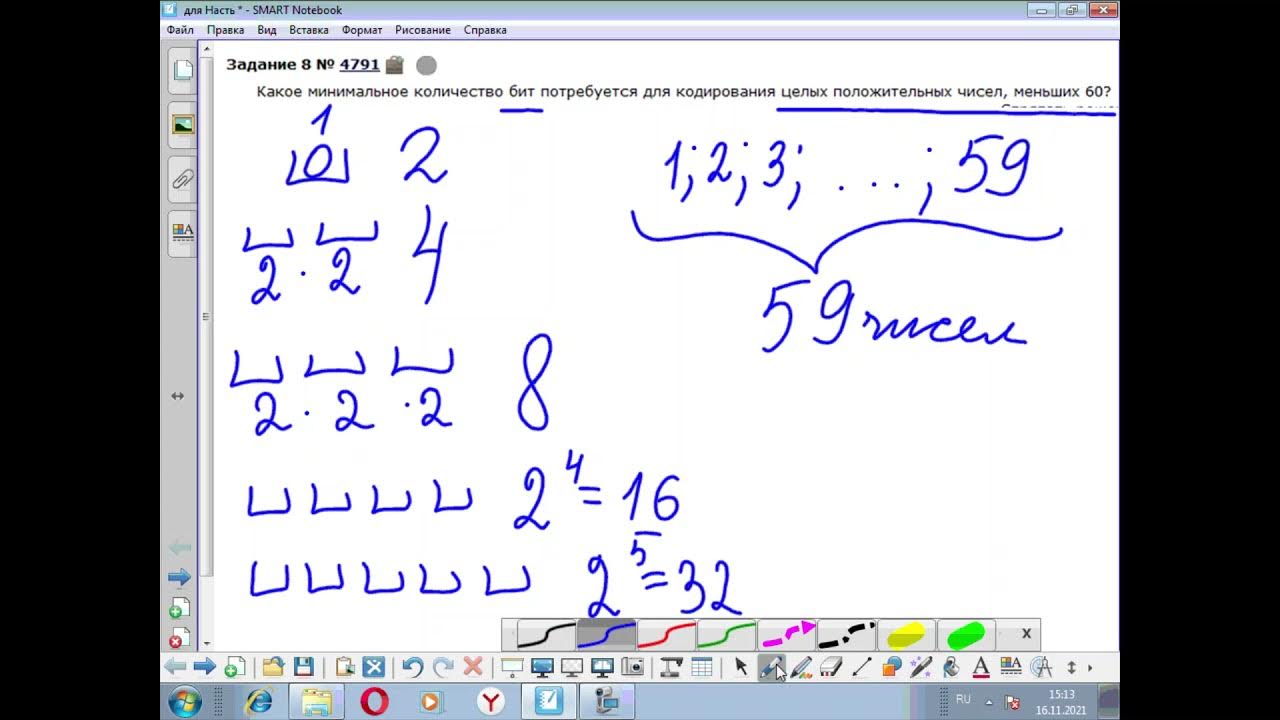 для Насть * - SMART Notebook
Файл Правка Вид Вставка Формат Рисование Справка
Задание 8 № 4791
Какое минимальное количество бит потребуется для кодирования целых положительных чисел, меньших 60?
1
0 2
1; 2; 3; . . . ; 59
2 · 2 4
59 чисел
2 · 2 · 2 8
2^4 = 16
2^5 = 32
X
A
RU
15:13
16.11.2021